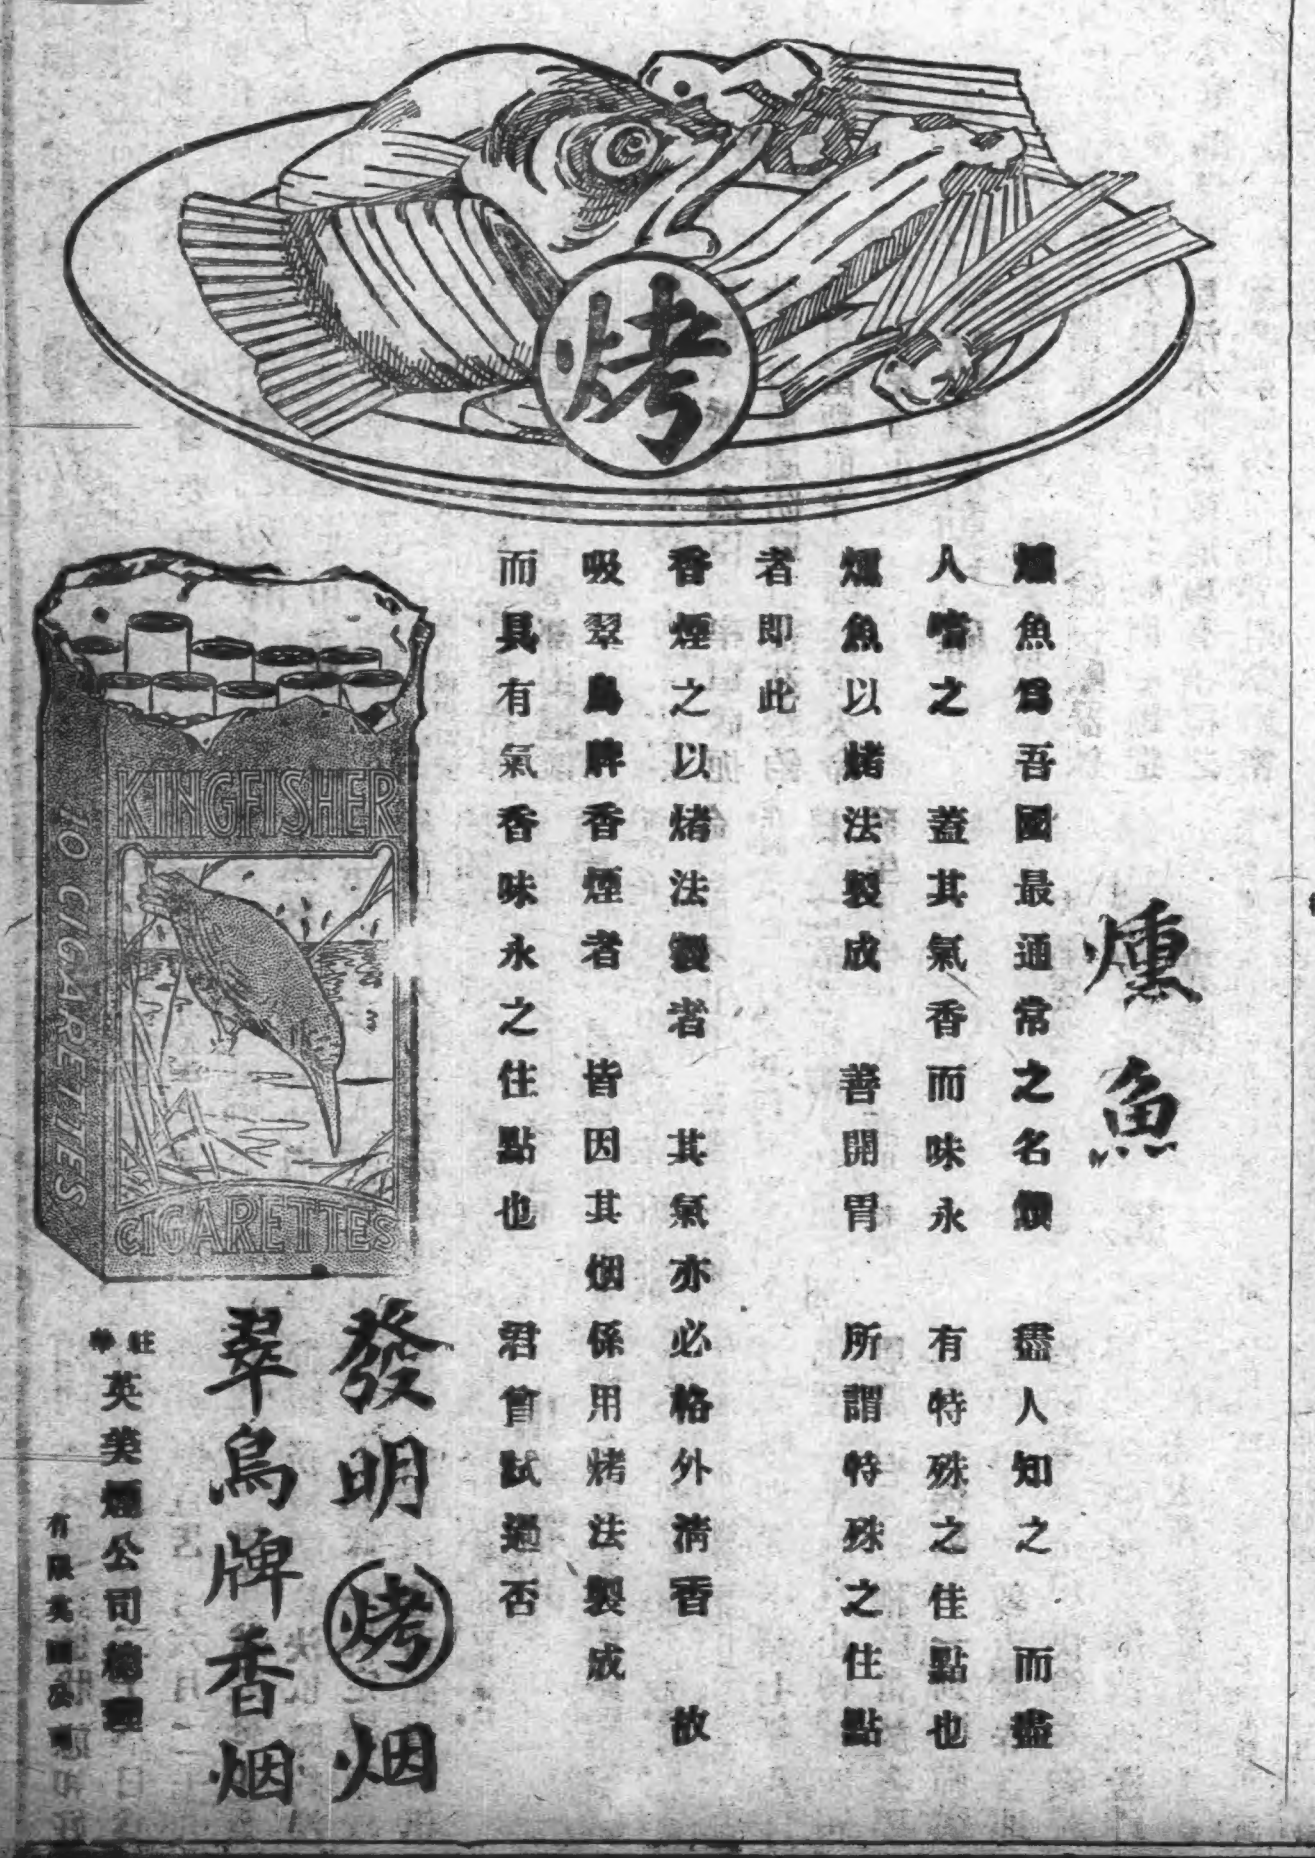 烤
燻魚
燻魚爲吾國最通常之名饌 盡人知之 而盡
人嗜之 蓋其氣香而味永 有特殊之佳點也
燻魚以烤法製成 善開胃 所謂特殊之住點
者即此
香煙之以烤法製者 其氣亦必格外清香 故
吸翠鳥牌香煙者 皆因其烟係用烤法製成
而具有氣香味永之住點也 君曾試過否
KINGFISHER
10 CIGARETTES
CIGARETTES
發明烤烟
翠鳥牌香烟
駐華英美煙公司總理
有限